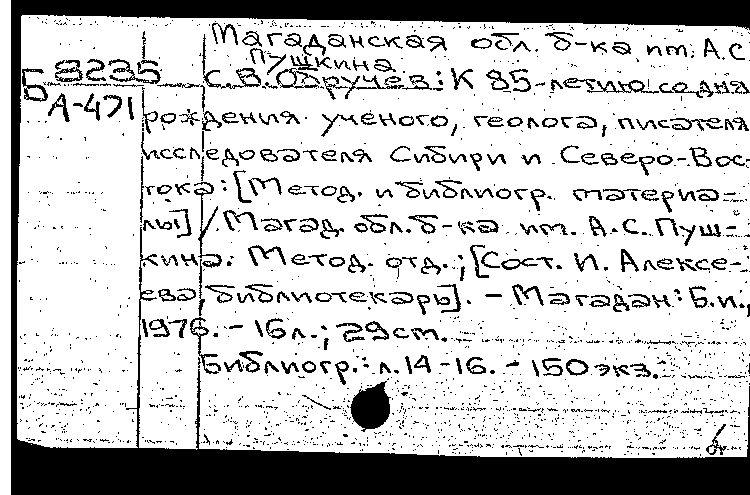 Магаданская обл. б-ка им. А.С
Пушкина
Б 8235
А-471
С.В.Обручев: К 85-летию со дня
рождения ученого, геолога, писателя
исследователя Сибири и Северо-Вос-
тока: [Метод. и библиогр. материа-
лы] / Магад. обл. б-ка им. А.С. Пуш-
кина. Метод. отд.; [Сост. И. Алексе-
ева, библиотекарь]. - Магадан: Б.и.,
1976. - 16л.; 29см.
Библиогр.: л.14-16. - 150 экз.